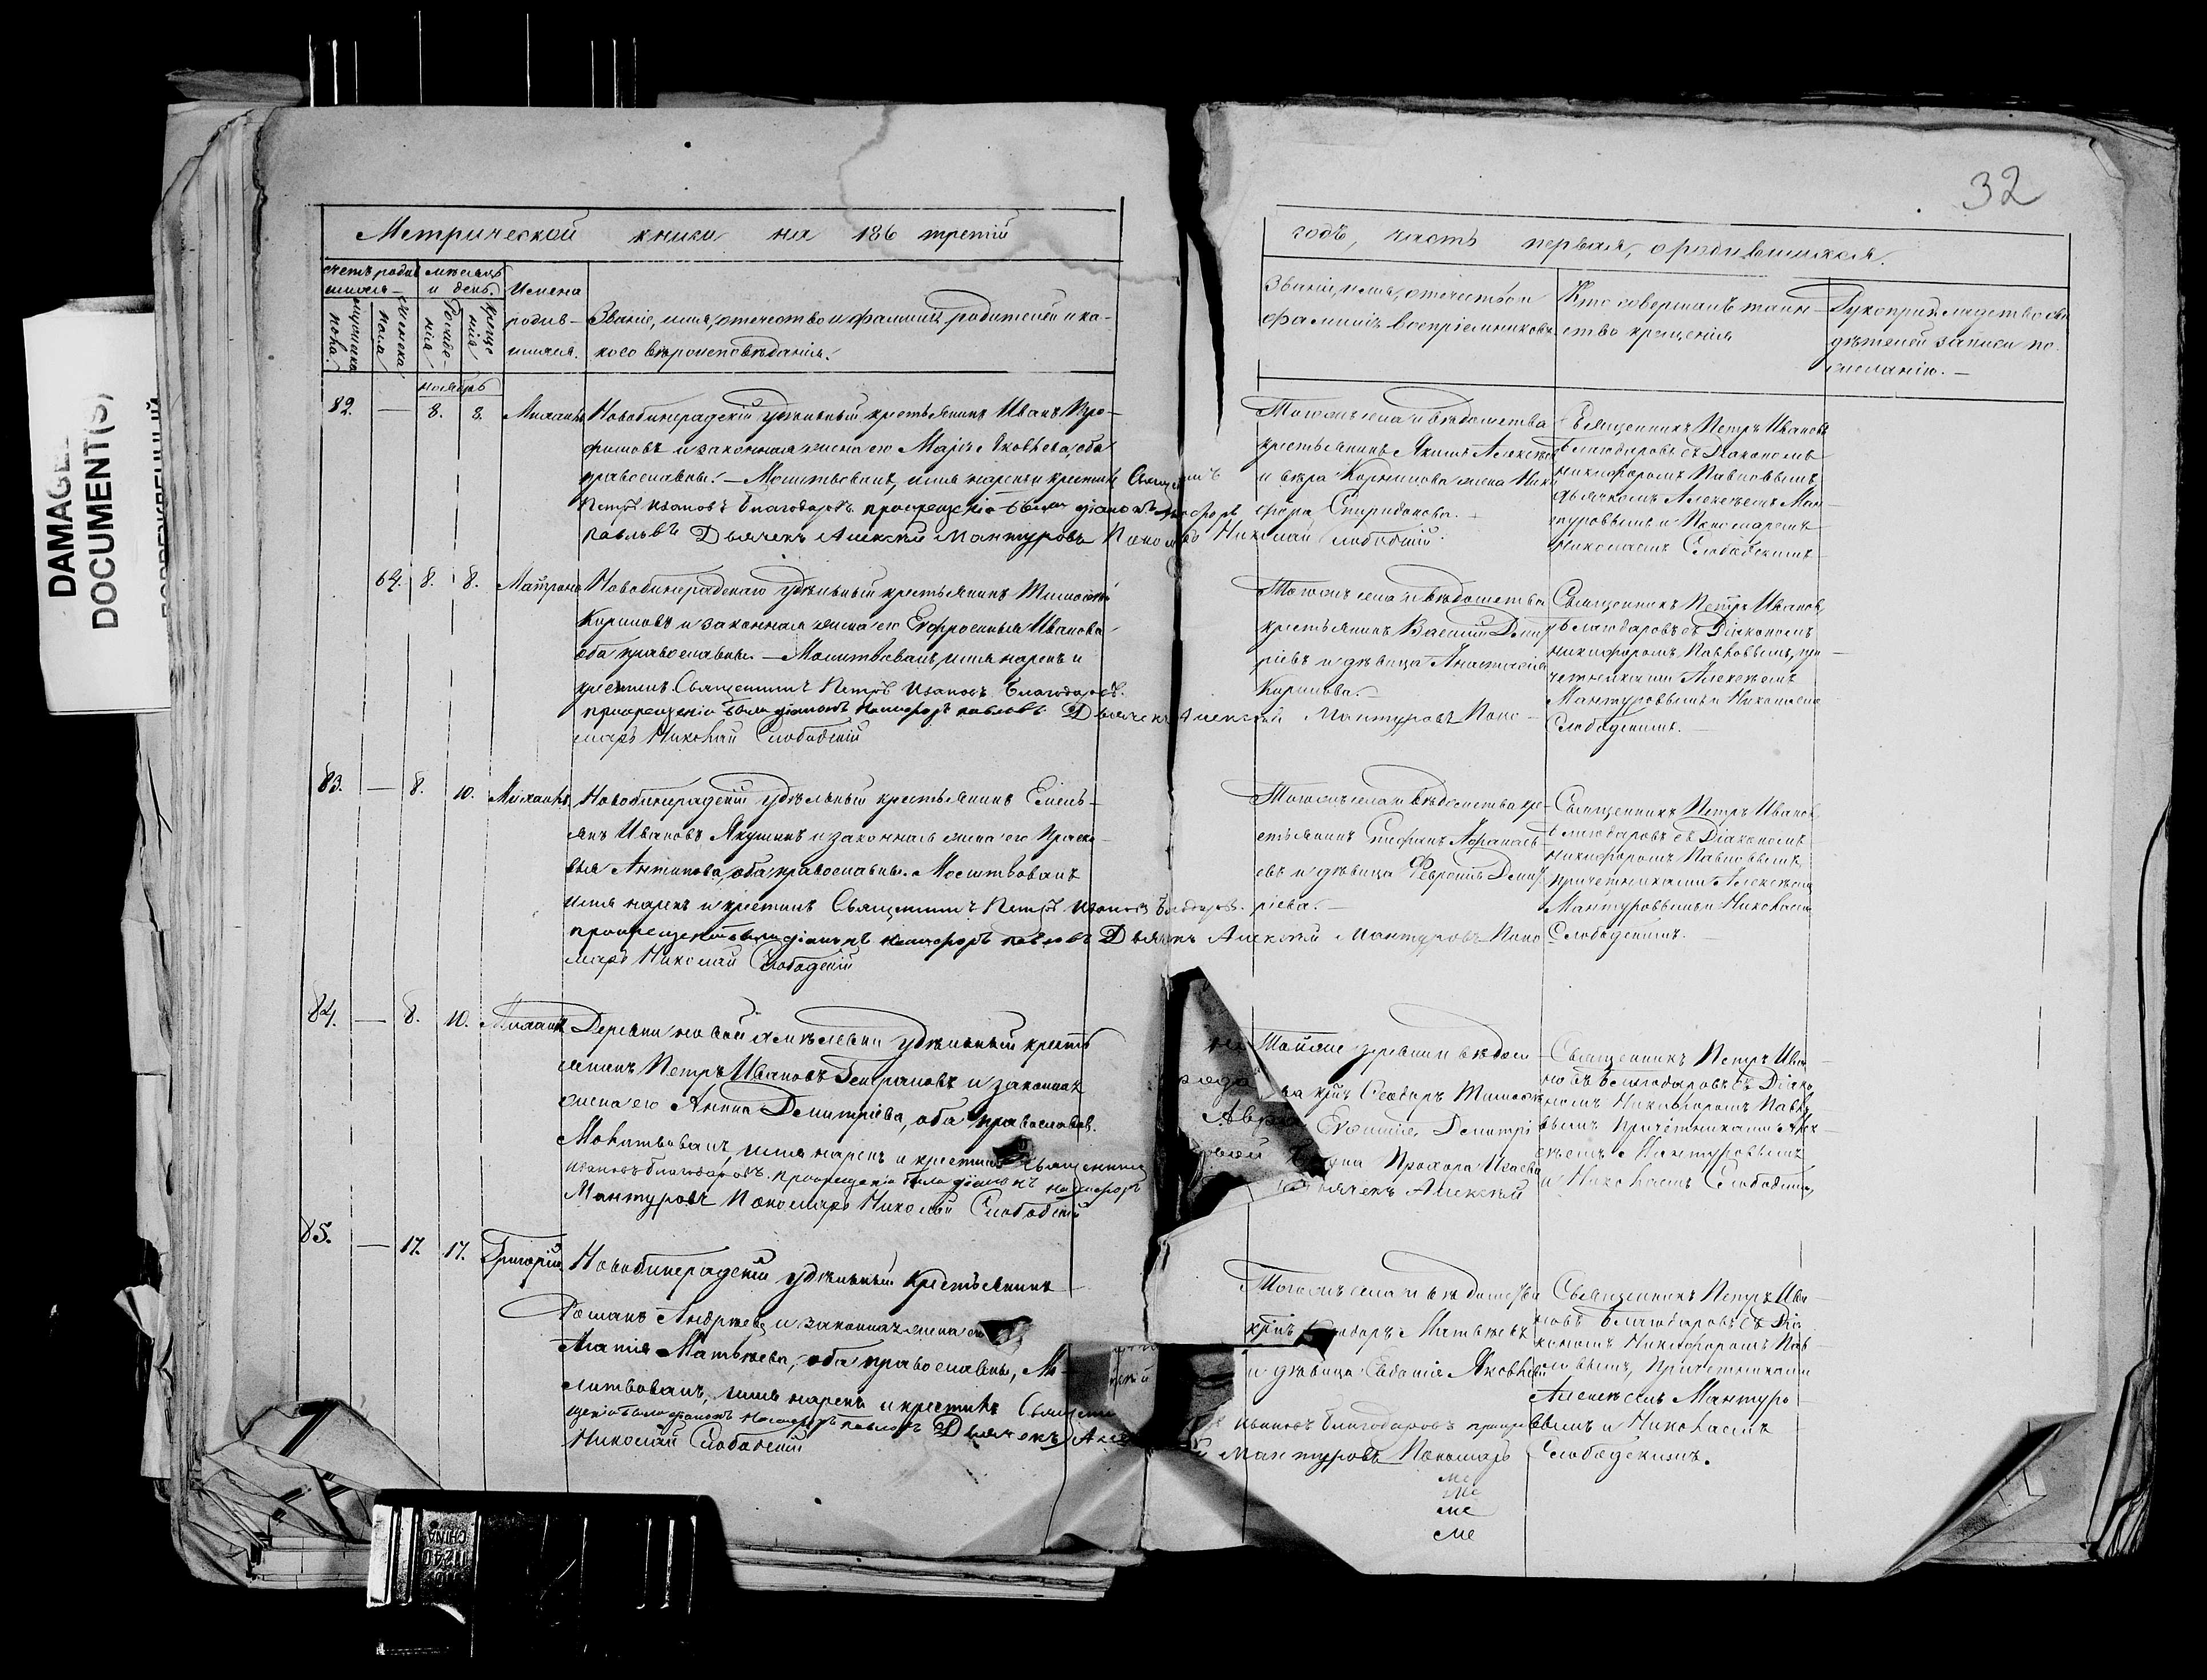 32
DAMAGE
DOCUMENT(S)
Метрической книги на 186 третій
годъ, часть первая, о родившихся.
счетъ родив
шихся
мѣсяцъ
и день.
Имена
родив-
шихся.
мужеска
пола.
женска
пола
Рожде-
нія
креще
нія
Званіе, имя, отчество и фамилія родителей и ка-
кого вѣроисповѣданія.
Званіе, имя, отчество и
фамилія воспріемниковъ
Кто совершалъ таин-
ство крещенія
Рукоприкладство сви
дѣтелей записи по
желанію. —
ноябрь
82. — 8. 8. Михаилъ
Новобинарадскій удѣльный крестьянинъ Иванъ Про-
фимовъ и законная жена его Марія Яковлева, оба
православны. — Молитвовалъ, имя нарекъ и крестилъ Священникъ
Петръ Ивановъ Благодаровъ при крещеніи былъ діаконъ Никифоръ
Павловъ Дьячекъ Алексѣй Мантуровъ Пономарь Николай Слободскій
Того же села и вѣдомства
крестьянинъ Якимъ Алексѣевъ
и вдова Корнилова жена Ники
фора Спиридонова. —
Священникъ Петръ Ивановъ
Благодаровъ съ Діакономъ
Никифоромъ Павловымъ,
дьячкомъ Алексѣемъ Ман
туровымъ и Пономаремъ
Николаемъ Слободскимъ
64. 8. 8. Матрона
Новобинарадскаго удѣльный крестьянинъ Тимоѳей
Кириловъ и законная жена его Евфросинья Иванова
оба православны. — Молитвовалъ, имя нарекъ и
крестилъ Священникъ Петръ Ивановъ Благодаровъ.
при крещеніи былъ діаконъ Никифоръ Павловъ Дьячекъ Алексѣй Мантуровъ Поно-
марь Николай Слободскій
Того же села и вѣдомства
крестьянинъ Василій Дмит
ріевъ и дѣвица Анастасія
Кирилова. —
Священникъ Петръ Ивановъ
Благодаровъ съ Діакономъ
Никифоромъ Павловымъ, при
четниками Алексѣемъ
Мантуровымъ и Николаемъ
Слободскимъ. —
83. — 8. 10. Михаилъ
Новобинарадскій удѣльный крестьянинъ Емель-
янъ Ивановъ Якушинъ и законная жена его Праско
вья Антипова, оба православны. Молитвовалъ
имя нарекъ и крестилъ Священникъ Петръ Ивановъ Благодаровъ.
при крещеніи былъ діаконъ Никифоръ Павловъ Дьячекъ Алексѣй Мантуровъ Поно
марь Николай Слободскій
Того же села и вѣдомства кре-
стьянинъ Стефанъ Афанась
евъ и дѣвица Февронія Дмит
ріева. —
Священникъ Петръ Ивановъ
Благодаровъ съ Діакономъ
Никифоромъ Павловымъ
причетниками Алексѣемъ
Мантуровымъ и Николаемъ
Слободскимъ. —
84. — 8. 10. Михаилъ
Деревни новой удѣльный кресть
янинъ Петръ Ивановъ и законная
жена его Анна Дмитріева, оба православн.
Молитвовалъ, имя нарекъ и крестилъ Священникъ
Ивановъ Благодаровъ. при крещеніи былъ діаконъ Никифоръ
Мантуровъ Пономарь Николай Слободскій
Той же деревни и вѣдом
Ѳеодоръ Тимоѳ
Дмитрі
Прохора Исаева
Дьячекъ Алексѣй
Священникъ Петръ Ива-
новъ Благодаровъ съ Діако
номъ Никифоромъ Павло
вымъ причетниками Алек
сѣемъ Мантуровымъ
и Николаемъ Слободским
85. — 17. 17. Григорій
Новобинарадскій удѣльный Крестьянинъ
Романъ Андреевъ и законная жена его
Марія Матвѣева, оба православны, Мо-
литвовалъ, имя нарекъ и крестилъ Священ
щеніи былъ діаконъ Никифоръ Павловъ Дьячекъ Але
Николай Слободскій
Того же села и вѣдомства
Матвѣевъ
и дѣвица Евдокія Яковлева
Ивановъ Благодаровъ при кре
Мантуровъ Пономарь
Священникъ Петръ Ива-
новъ Благодаровъ съ Діа
кономъ Никифоромъ Пав-
ловымъ, Причетниками
Алексѣемъ Мантуро-
вымъ и Николаемъ
Слободскимъ.
ме
ме
ме
ме
CHINA